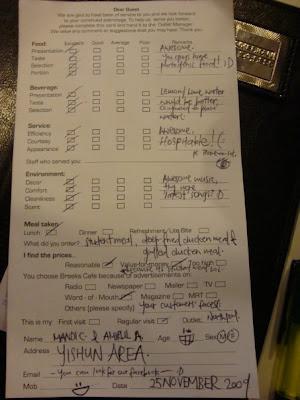 Dear Guest
We are glad to have been of service to you and we look forward
to your continued patronage. To help us serve you better,
please complete this card and hand it to the Outlet Manager.
We value any comments or suggestions that you may have. Thank you.
Food: Excellent Good Average Poor Remarks
Presentation Awesome.
Taste You guys have
Selection photogenic food! :D
Portion
Beverage:
Presentation Lemon/Lime water
Taste would be better.
Selection water!
Service:
Efficiency Awesome.
Courtesy Hospitable! (:
Appearance
Staff who served you:
Environment:
Decor Awesome music,
Comfort try more
Cleanliness latest songs! :D
Scent
Meal taken:
Lunch Dinner Refreshment / Lite Bite
What did you order? Student meal, deep fried chicken meal &
grilled chicken meal.
I find the prices...
Reasonable Value-for-money Too high
You choose Breeks Cafe because of advertisements on:
Radio Newspaper Mailer TV
Word-of-Mouth Magazine MRT
Others (please specify) your customers' faces!
This is my: First visit Regular visit Outlet: Northpoint
Name MANDIC. & A. Age Sex M/F
Address YISHUN AREA.
Email - You can look for our facebook -
Mob Date 25 NOVEMBER 2009